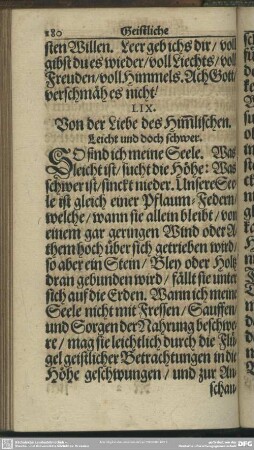 280 Geistliche
sten Willen. Leer geb ichs dir / voll
gibst du es wieder / voll Liechts / voll
Freuden / voll Himmels. Ach Gott
verschmäh es nicht!
LIX.
Von der Liebe des Him̃lischen.
Leicht und doch schwer.
SO sind ich meine Seele. Was
leicht ist / sucht die Höhe: Was
schwer ist / sinckt nieder. Unsere See-
le ist gleich einer Pflaum-Federn /
welche / wann sie allein bleibt / von
einem gar geringen Wind oder A-
them hoch über sich getrieben wird /
so aber ein Stein / Bley oder Holtz
dran gebunden wird / fällt sie unter
sich auf die Erden. Wann ich meine
Seele nicht mit Fressen / Sauffen /
und Sorgen der Nahrung beschwe-
re / mag sie leichtlich durch die Flü-
gel geistlicher Betrachtungen in die
Höhe geschwungen / und zur An-
schau-